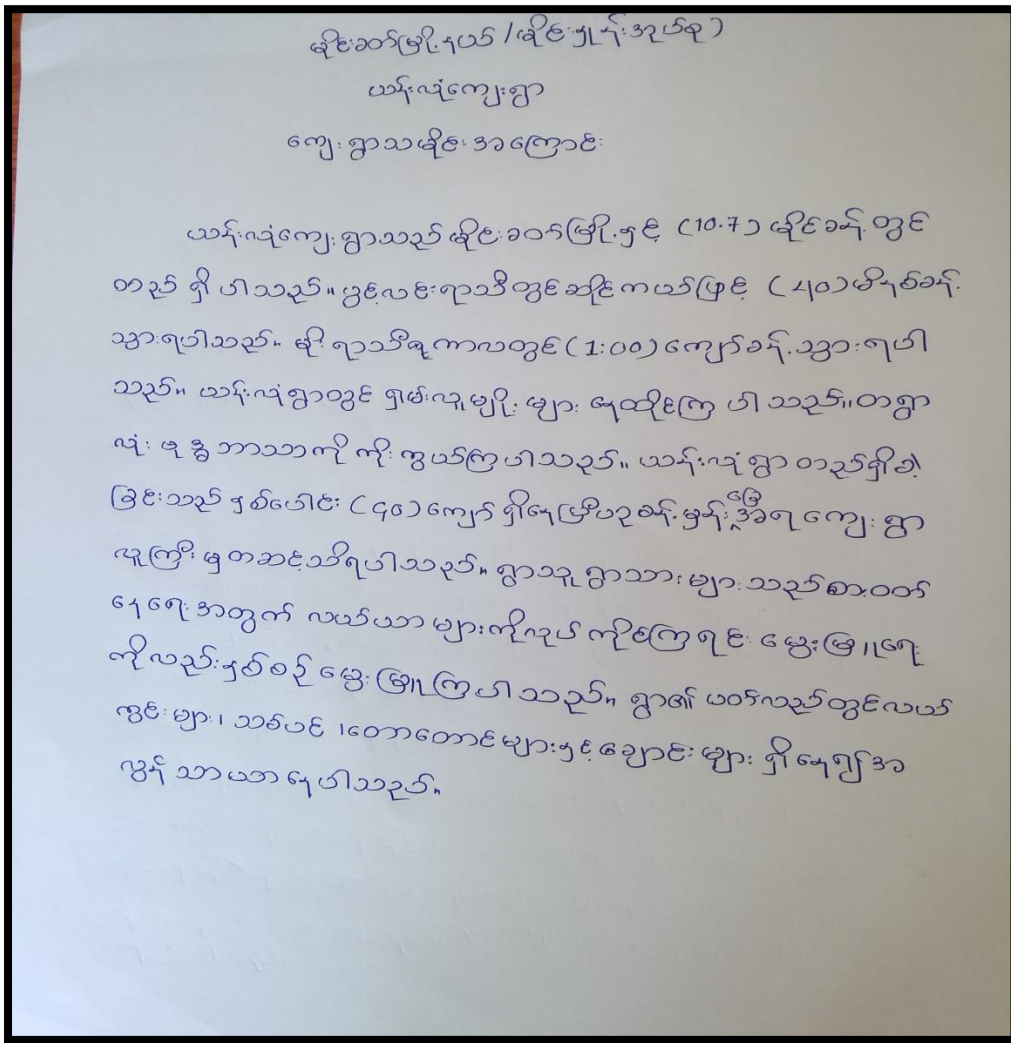 မိုင်းခတ်မြို့နယ် /မိုင်းရှုန်းအုပ်စု)
ယန်းလုံကျေးရွာ
ကျေးရွာသမိုင်းအကြောင်း
ယန်းလုံကျေးရွာသည် မိုင်းခတ်မြို့နှင့် (10.7) မိုင်ခန့်တွင်
တည် ရှိ ပါသည်။ ပွင့်လင်းရာသီတွင်ဆိုင်ကယ်ဖြင့် (၄၀)မိနစ်ခန့်
သွားရပါသည်။ မိုးရာသီဥကာလတွင် (1:00) ကျော်ခန့်သွားရပါ
သည်။ ယန်းလုံရွာတွင် ရှမ်းလူမျိုး များ နေထိုင်ကြ ပါသည်။တရွာ
လုံး ဗုဒ္ဓဘာသာကို ကိုးကွယ်ကြပါသည်။ ယန်းလုံရွာ တည်ရှိခဲ့
ခြင်းသည် နှစ်ပေါင်း (၄၀) ကျော် ရှိနေပြီဟု ခန့်မှန်းခြေအရ ကျေးရွာ
လူကြီးမှတဆင့်သိရပါသည်။ ရွာသူရွာသားများသည်စားဝတ်
နေရေးအတွက် လယ်ယာများကိုလုပ်ကိုင်ကြရင်း မွေးမြူရေး
ကိုလည်းနှစ်စဉ် မွေးမြူကြပါသည်။ ရွာ၏ ပတ်လည်တွင်လယ်
ကွင်းများ၊ သစ်ပင် ၊တောတောင်များနှင့်ချောင်းများ ရှိနေ၍အ
လွန် သာယာနေပါသည်။